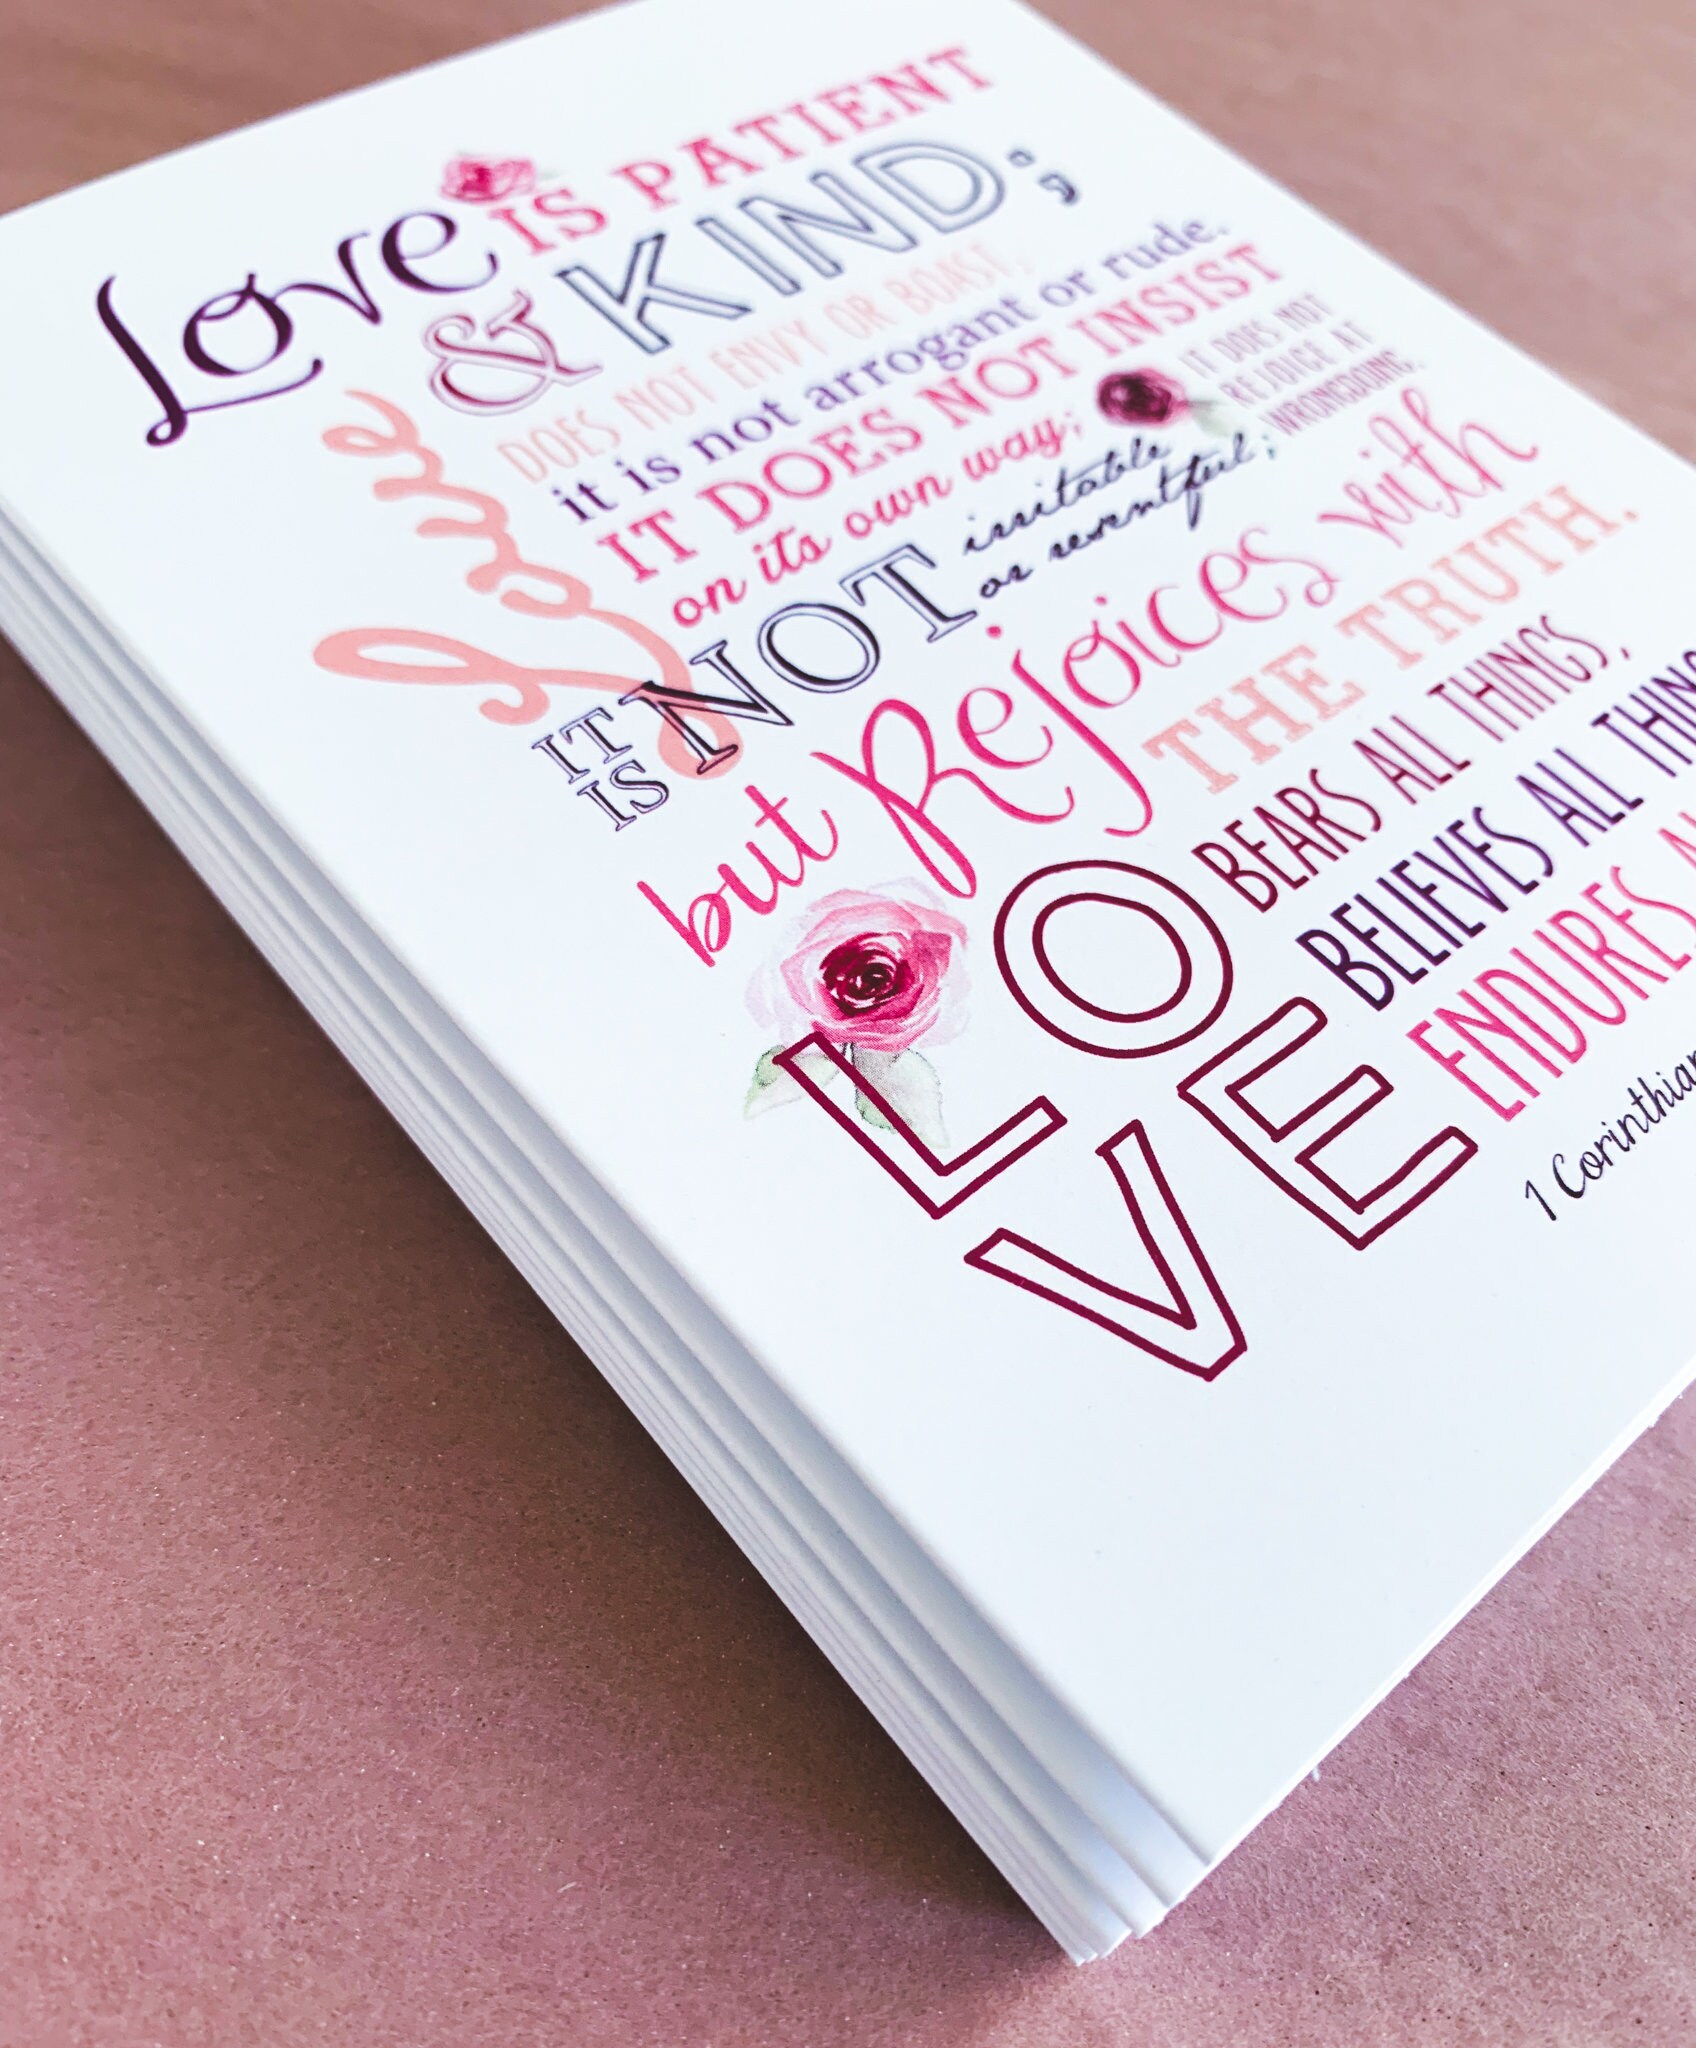 Love IS PATIENT
& KIND;
love
DOES NOT ENVY OR BOAST,
it is not arrogant or rude.
IT DOES NOT INSIST
on its own way;
IT IS NOT irritable
or resentful;
IT DOES NOT
REJOICE AT
WRONGDOING,
but Rejoices with
THE TRUTH.
LOVE
BEARS ALL THINGS,
BELIEVES ALL
ENDURES
1